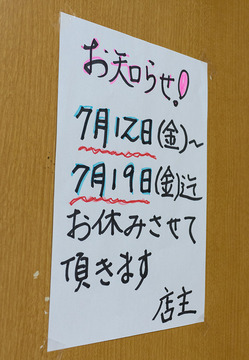 お知らせ!
7月12日(金)~
7月19日(金)迄
お休みさせて
頂きます
店主